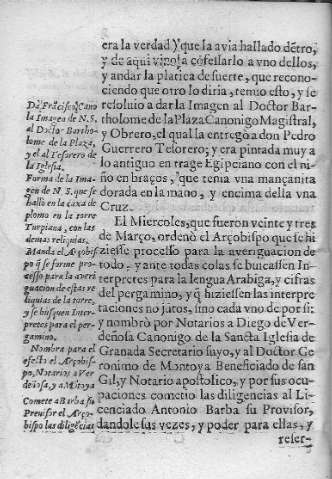 era la verdad, y que la avia hallado dẽtro,
y de aqui vino a cõfessarlo a vno dellos,
y andar la platica de suerte, que recono-
ciendo que otro lo diria, temio esto, y se
resoluio a dar la Imagen al Doctor Bar-
tholome de la Plaza Canonigo Magistral,
y Obrero, el qual la entregò a don Pedro
Guerrero Tesorero; y era pintada muy a
lo antiguo en trage Egipciano con el ni-
ño en braços, que tenia vna mançanita
dorada en la mano, y encima della vna
Cruz.
El Miercoles, que fueron veinte y tres
de Março, ordenò el Arçobispo que se hi
ziesse processo para la averiguacion de
todo, y ante todas cosas se buscassen In-
terpretes para la lengua Arabiga, y cifras
del pergamino, y q̃ hiziessen las interpre
taciones no jũtos, sino cada vno de por si:
y nombrò por Notarios a Diego de Ver-
deñosa Canonigo de la Sancta Iglesia de
Granada Secretario suyo, y al Doctor Ge
ronimo de Montoya Beneficiado de san
Gil, y Notario apostolico, y por sus ocu-
paciones cometio las diligencias al Li-
cenciado Antonio Barba su Provisor,
dandole sus vezes, y poder para ellas, y
refer-
Dà Frãcisco Cano
la Imagen de N. S.
al Doctor Bartho-
lome de la Plaza,
y el al Tesorero de
la Iglesia.
Forma de la Ima-
gen de N. S. que se
hallò en la caxa de
plomo en la torre
Turpiana, con las
demas reliquias.
Manda el Arçobisp
po q̃ se forme pro-
cesso para la averi
guacion de estas re
liquias de la torre,
y se busquen Inter-
pretes para el per-
gamino.
Nombra para el
efecto el Arçobis-
po, Notarios a Ver
deñosa, y a Mõtoya
Comete a Barba su
Provisor el Arço-
bispo las diligẽcias